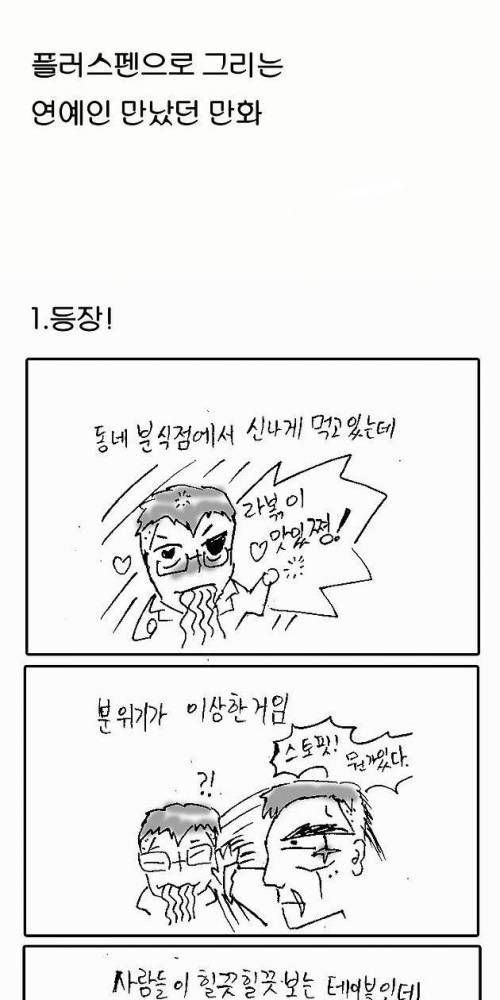 플러스펜으로 그리는
연예인 만났던 만화
1.등장!
동네 분식점에서 신나게 먹고있는데
라볶이
맛있쪙!
분위기가 이상한거임
스토핏!
뭔가있다.
?!
사람들이 힐끗힐끗보는 테이블인데